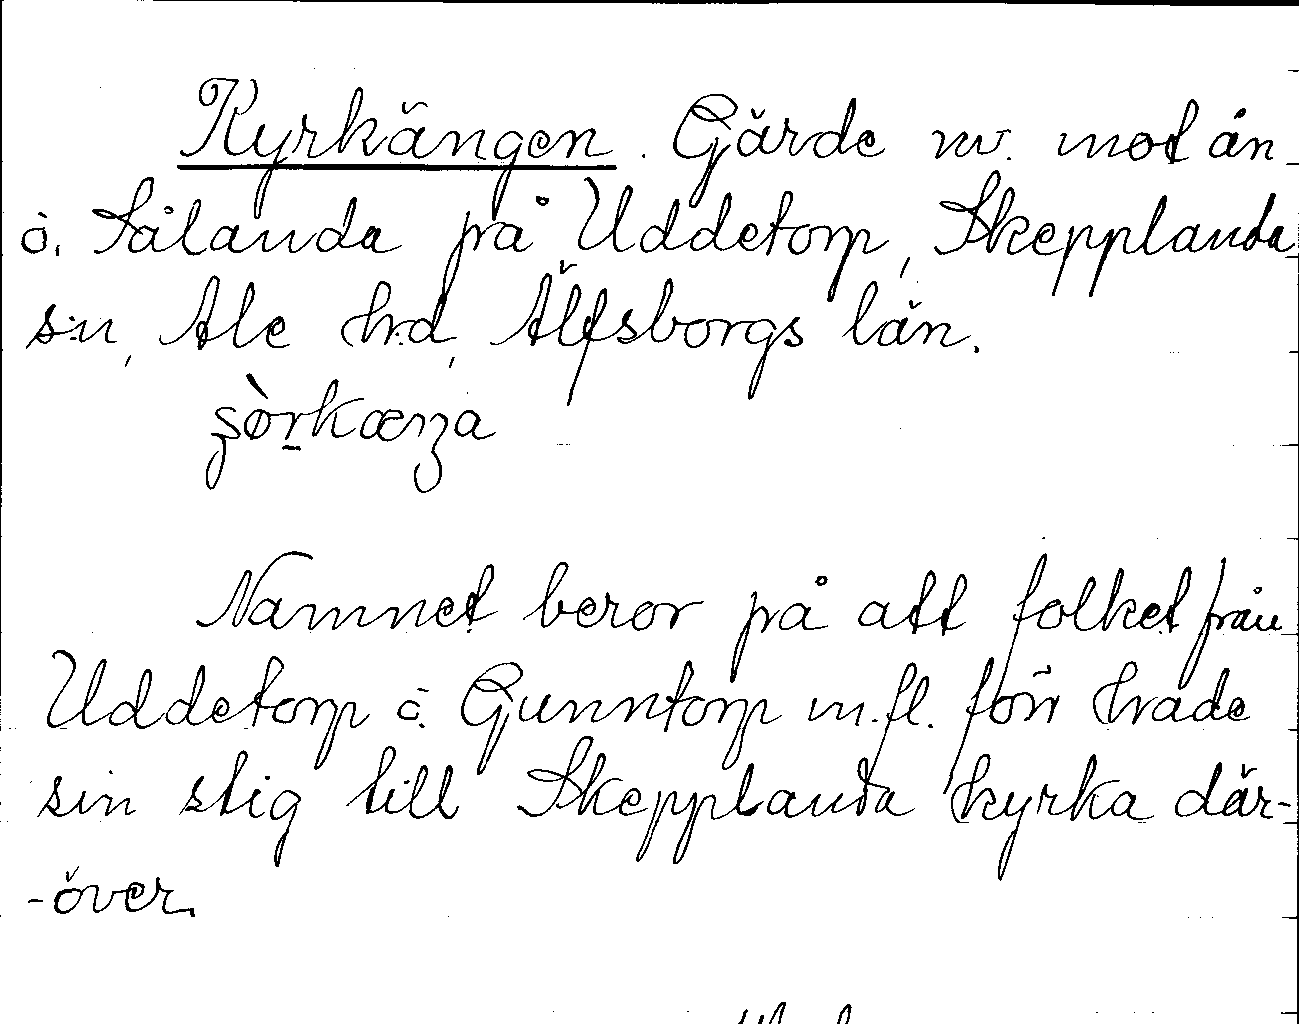 Kyrkängen. Gärde nv. mot ån
o. Sålanda på Uddetorp, Skepplanda
s:n, Ale hrd, Älfsborgs län.
Namnet beror på att folket från
Uddetorp o. Gunntorp m.fl. förr hade
sin stig till Skepplanda kyrka där-
-över.